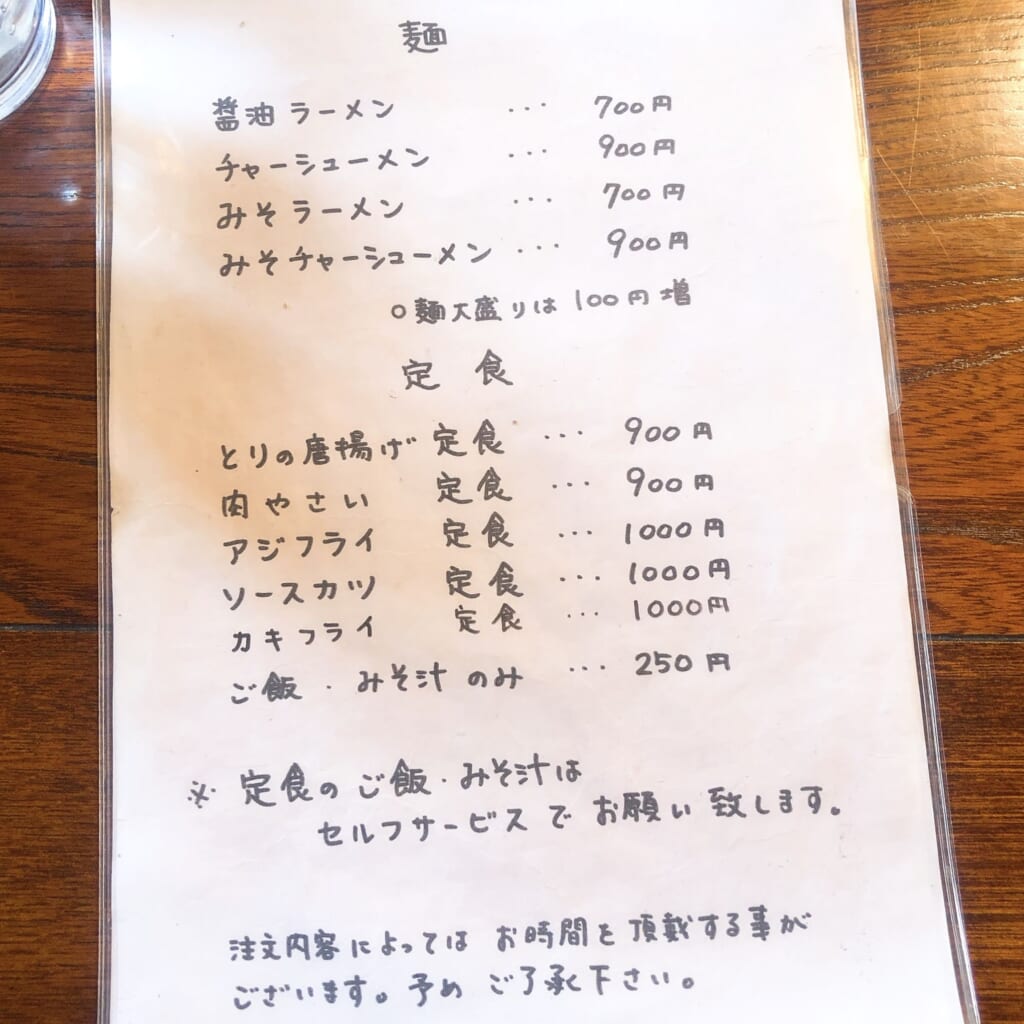 麺
醤油ラーメン ... 700円
チャーシューメン ... 900円
みそラーメン ... 700円
みそチャーシューメン ... 900円
○麺大盛りは100円増
定食
とりの唐揚げ 定食 ... 900円
肉やさい 定食 ... 900円
アジフライ 定食 ... 1000円
ソースカツ 定食 ... 1000円
カキフライ 定食 ... 1000円
ご飯・みそ汁のみ ... 250円
※定食のご飯・みそ汁は
セルフサービスでお願い致します。
注文内容によってはお時間を頂戴する事が
ございます。予めご了承下さい。